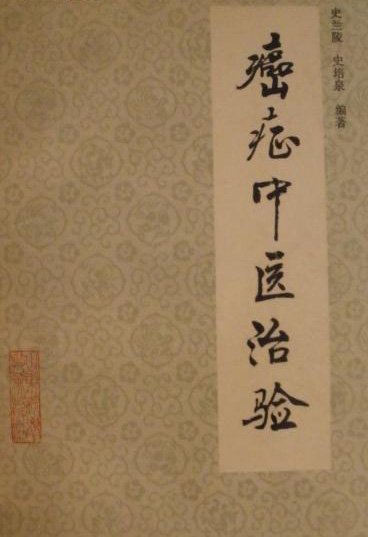 史兰陵 史培泉 编著
癌症中医治验